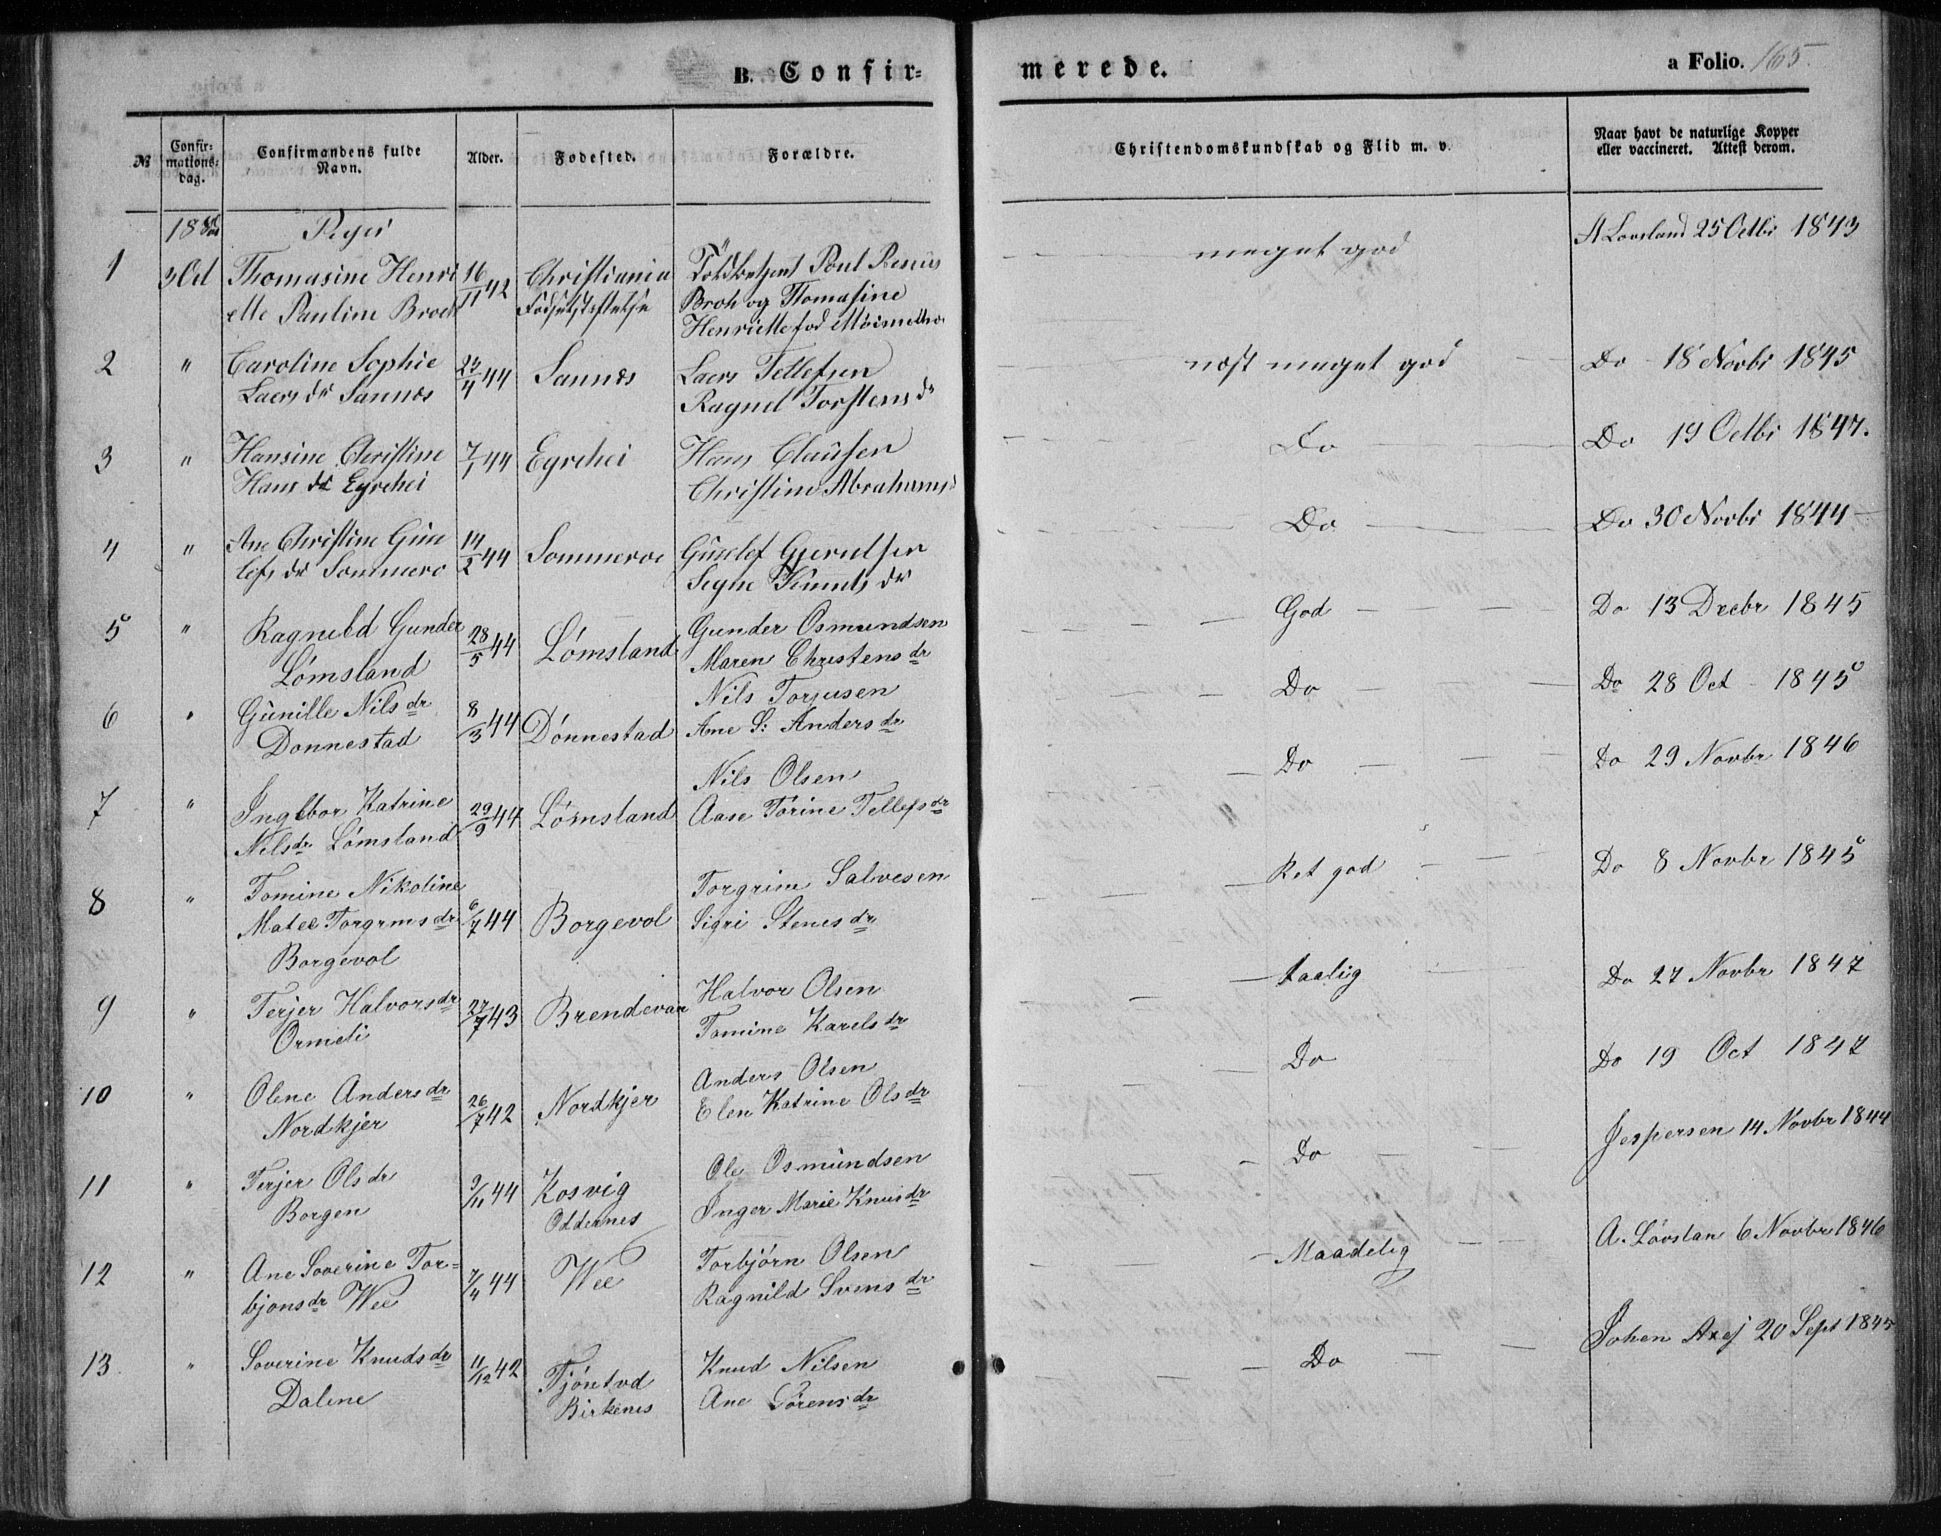 B. Confir=
merede.
a Folio. 165.
№
Confir=
mations=
dag.
Confirmandens fulde
Navn.
Alder.
Fødested.
Forældre.
Christendomskundskab og Flid m. v.
Naar havt de naturlige Kopper
eller vaccineret. Attest derom.
18
Piger
1 3 Oct Thomasine Henri
ette Pauline Broch
16/11 42
Christiania
Fødselsstiftelse
Poul
Broch og Thomasine
Henriette fød
meget god
A Lovsland 25 Octbr 1843
2 " Caroline Sophie
Laers dr Sannes
23/4 44
Sannes
Laers Tellefsen
Ragnel Torstens dr
næst meget god
Do 18 Novbr 1845
3 " Hansine Christine
Hans dr Egrehei
7/1 44
Egrehei
Hans Clausen
Christine Abrahams dr
Do
Do 19 Octbr 1847.
4 " Ane Christine Gun
lefs dr Sommero
14/2 44
Sommeroe
Gunlef Gjerulfsen
Segne Knuds dr
Do
Do 30 Novbr 1844
5 " Ragnild Gunder
Lømsland
28/5 44
Lømsland
Gunder Osmundsen
Maren Christens dr
God
Do 13 Decbr 1845
6 " Gunille Nils dr
Donnestad
8/3 44
Dønnestad
Nils Torjusen
Ane S: Anders dr
Do
Do 28 Oct 1845
7 " Ingebor Katrine
Nils dr Lømsland
29/9 44
Lømsland
Nils Olsen
Aase Torine Tellefs dr
Do
Do 29 Novbr 1846
8 " Tomine Nikoline
Matee Torgrms dr
Borgevol
6/7 44
Borgevol
Torgrim Salvesen
Sigri Stenes dr
Ret god
Do 8 Novbr 1845
9 " Terjer Halvors dr
Ormeli
27/7 43
Brendevan
Halvor Olsen
Tomine Karels dr
taalig
Do 27 Novbr 1847
10 " Olene Anders dr
Nordkjer
26/7 42
Nordkjer
Anders Olsen
Elen Katrine Ols dr
Do
Do 19 Oct 1847
11 " Terjer Ols dr
Borgen
9/11 44
Kosvig
Oddernes
Ole Osmundsen
Inger Marie Knus dr
Do
Jespersen 14 Novbr 1844
12 " Ane Soverine Tor=
bjons dr Wee
7/4 44
Wee
Torbjørn Olsen
Ragnild Svens dr
Maadelig
A. Lovslan 6 Novbr 1846
13 " Soverine Knuds dr
Dalene
11/12 42
Tjøntvd
Birkenes
Knud Nilsen
Ane Sørens dr
Do
Johen Axej 20 Sept 1845